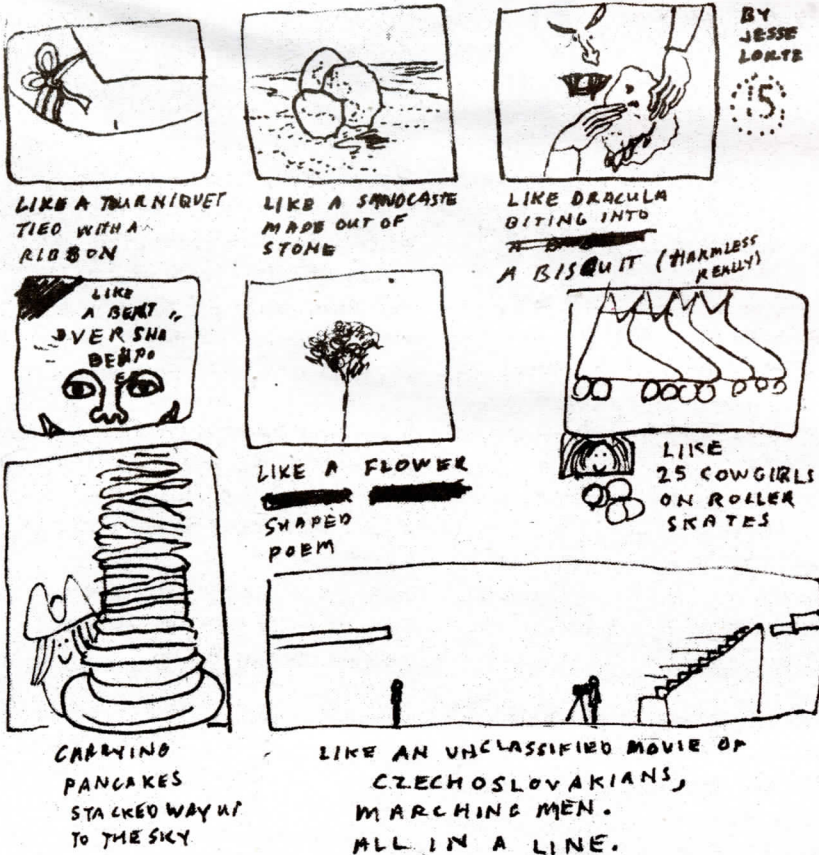 BY
JESSE
LORTE
15
LIKE A TOURNIQUET
TIED WITH A
RIBBON
LIKE A SANDCASTE
MADE OUT OF
STONE
LIKE DRACULA
BITING INTO
A BISQUIT (HARMLESS
REALLY)
LIKE
A BEAT
OVER SHA
LIKE A FLOWER
SHAPED
POEM
LIKE
25 COWGIRLS
ON ROLLER
SKATES
CARRYING
PANCAKES
STACKED WAY UP
TO THE SKY
LIKE AN UNCLASSIFIED MOVIE OF
CZECHOSLOVAKIANS,
MARCHING MEN.
ALL IN A LINE.